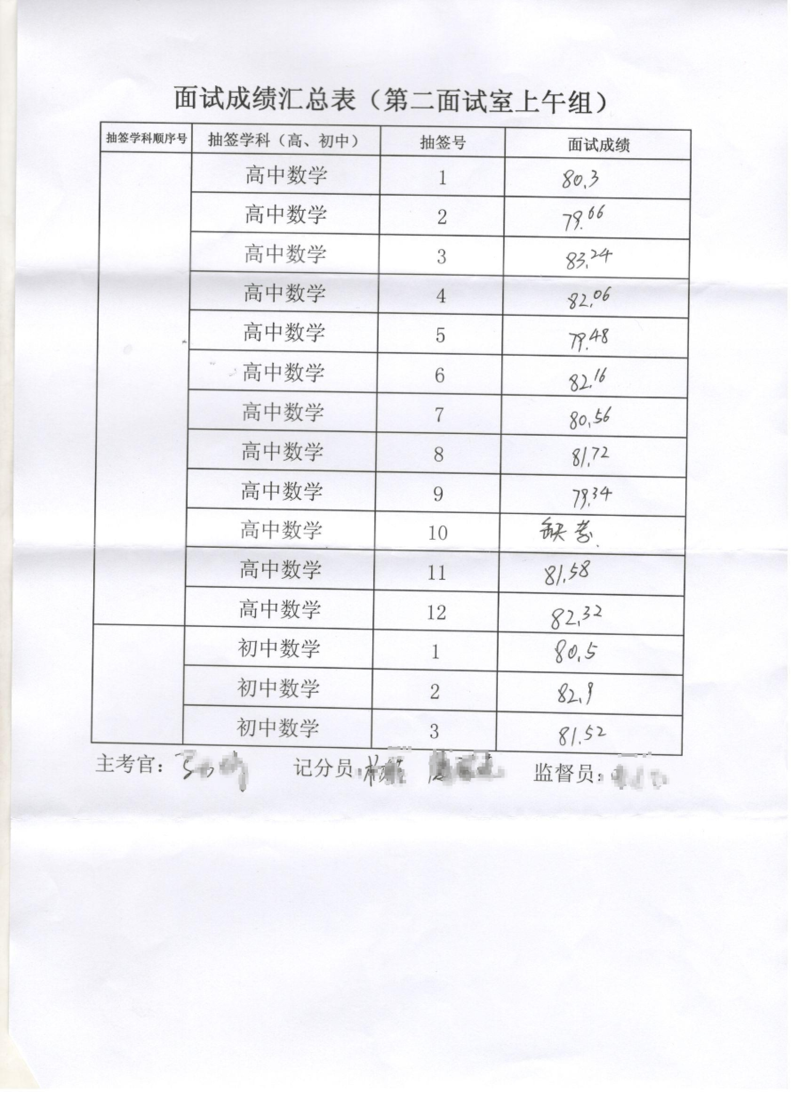 面试成绩汇总表（第二面试室上午组）
抽签学科顺序号 抽签学科（高、初中） 抽签号 面试成绩
高中数学 1 80.3
高中数学 2 79.66
高中数学 3 83.24
高中数学 4 82.06
高中数学 5 79.48
高中数学 6 82.16
高中数学 7 80.56
高中数学 8 81.72
高中数学 9 79.34
高中数学 10 缺考.
高中数学 11 81.58
高中数学 12 82.32
初中数学 1 80.5
初中数学 2 82.9
初中数学 3 81.52
主考官： 记分员: 监督员: